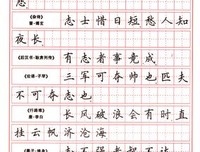 志
《杂诗》
晋·傅玄
志士惜日短愁人知
夜长
《后汉书·耿弇列传》
有志者事竟成
《论语·子罕》
三军可夺帅也匹夫
不可夺志也
《行路难》
唐·李白
长风破浪会有时直
挂云帆济沧海